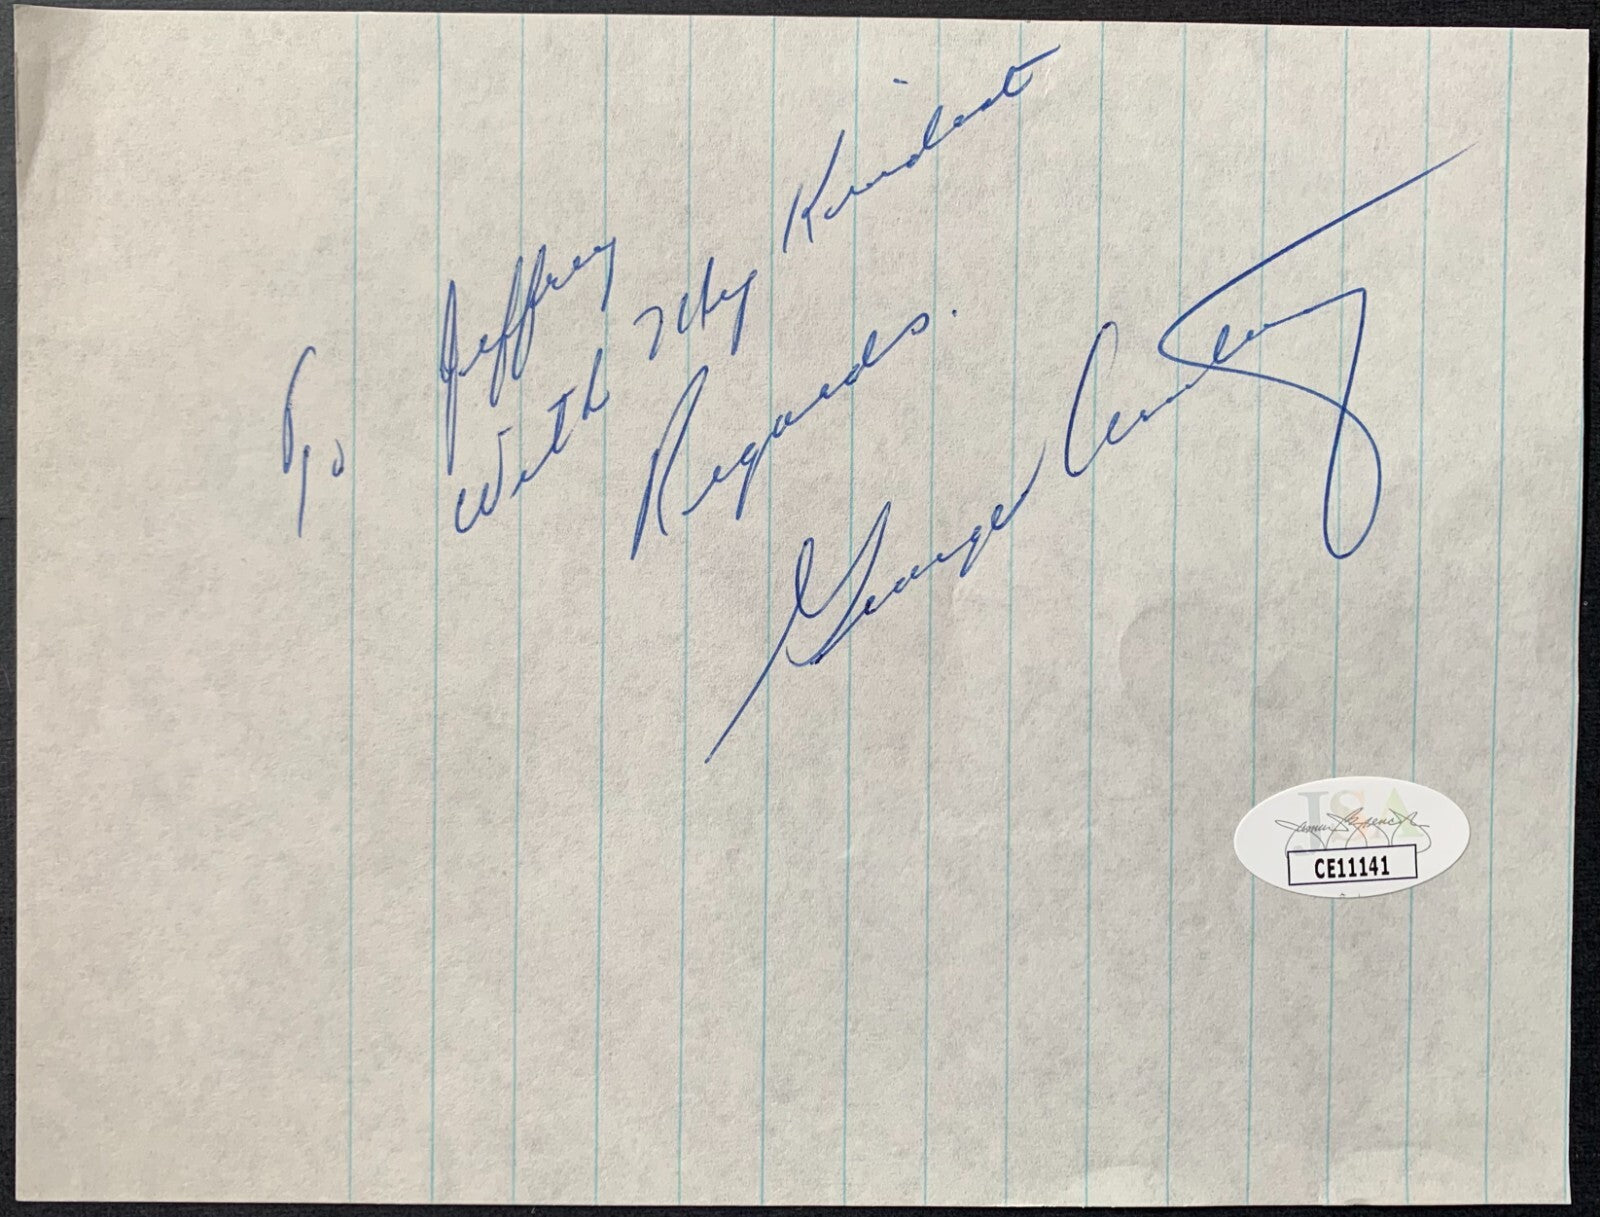 To Jeffrey
With My Kindest
Regards.
George
JSA
James Spence
CE11141